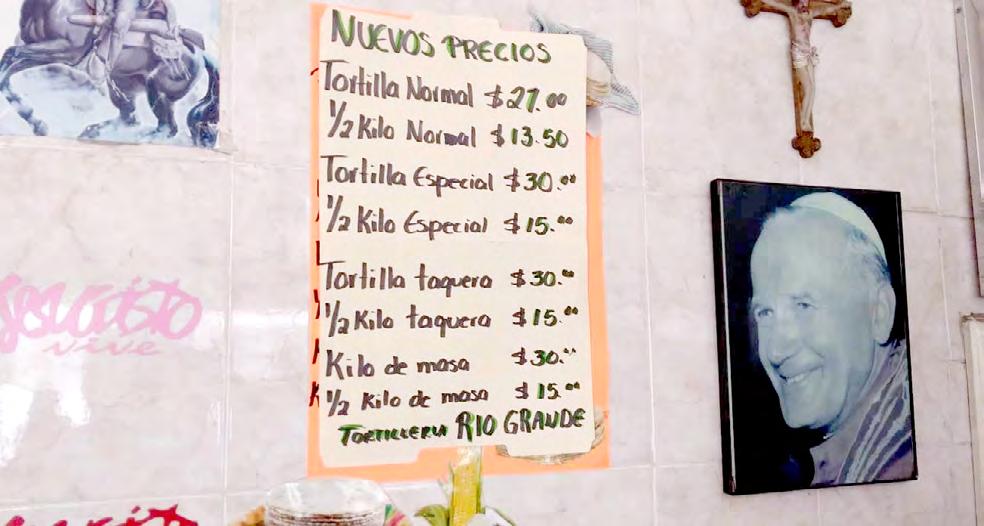 NUEVOS PRECIOS
Tortilla Normal $27.00
1/2 Kilo Normal $13.50
Tortilla Especial $30.00
1/2 Kilo Especial $15.00
Tortilla taquera $30.00
1/2 Kilo taquera $15.00
Kilo de masa $30.00
1/2 Kilo de masa $15.00
TORTILLERIA RIO GRANDE
Jesucristo
vive